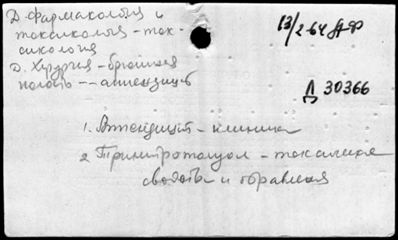 Д. Фармакология и
токсикология - ток-
сикология
Д. Хирургия - брюшная
полость - аппендицит
13/2-64
Д 30366
1. Аппендицит - клиника
2. Тринитротолуол - токсические
свойства и отравления